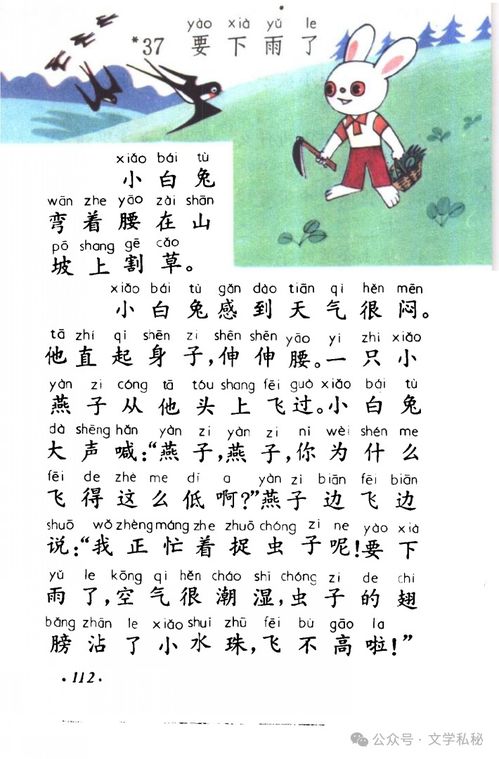 yào xià yǔ le
*37 要下雨了
xiǎo bái tù
小白兔
wān zhe yāo zài shān
弯着腰在山
pō shang gē cǎo
坡上割草。
xiǎo bái tù gǎn dào tiān qì hěn mēn
小白兔感到天气很闷。
tā zhí qi shēn zi shēn shēn yāo yi zhi xiǎo
他直起身子,伸伸腰。一只小
yàn zi cóng tā tóu shang fēi guò xiǎo bái tù
燕子从他头上飞过。小白兔
dà shēng hǎn yàn zi yàn zi nǐ wèi shén me
大声喊:“燕子,燕子,你为什么
fēi de zhè me dī a yàn zi biān fēi biān
飞得这么低啊?”燕子边飞边
shuō wǒ zhèng máng zhe zhuō chóng zi ne yào xià
说:“我正忙着捉虫子呢!要下
yǔ le kōng qì hěn cháo shī chóng zi de chì
雨了,空气很潮湿,虫子的翅
bǎng zhān le xiǎo shuǐ zhū fēi bù gāo la
膀沾了小水珠,飞不高啦!”
·112·
公众号·文学私秘